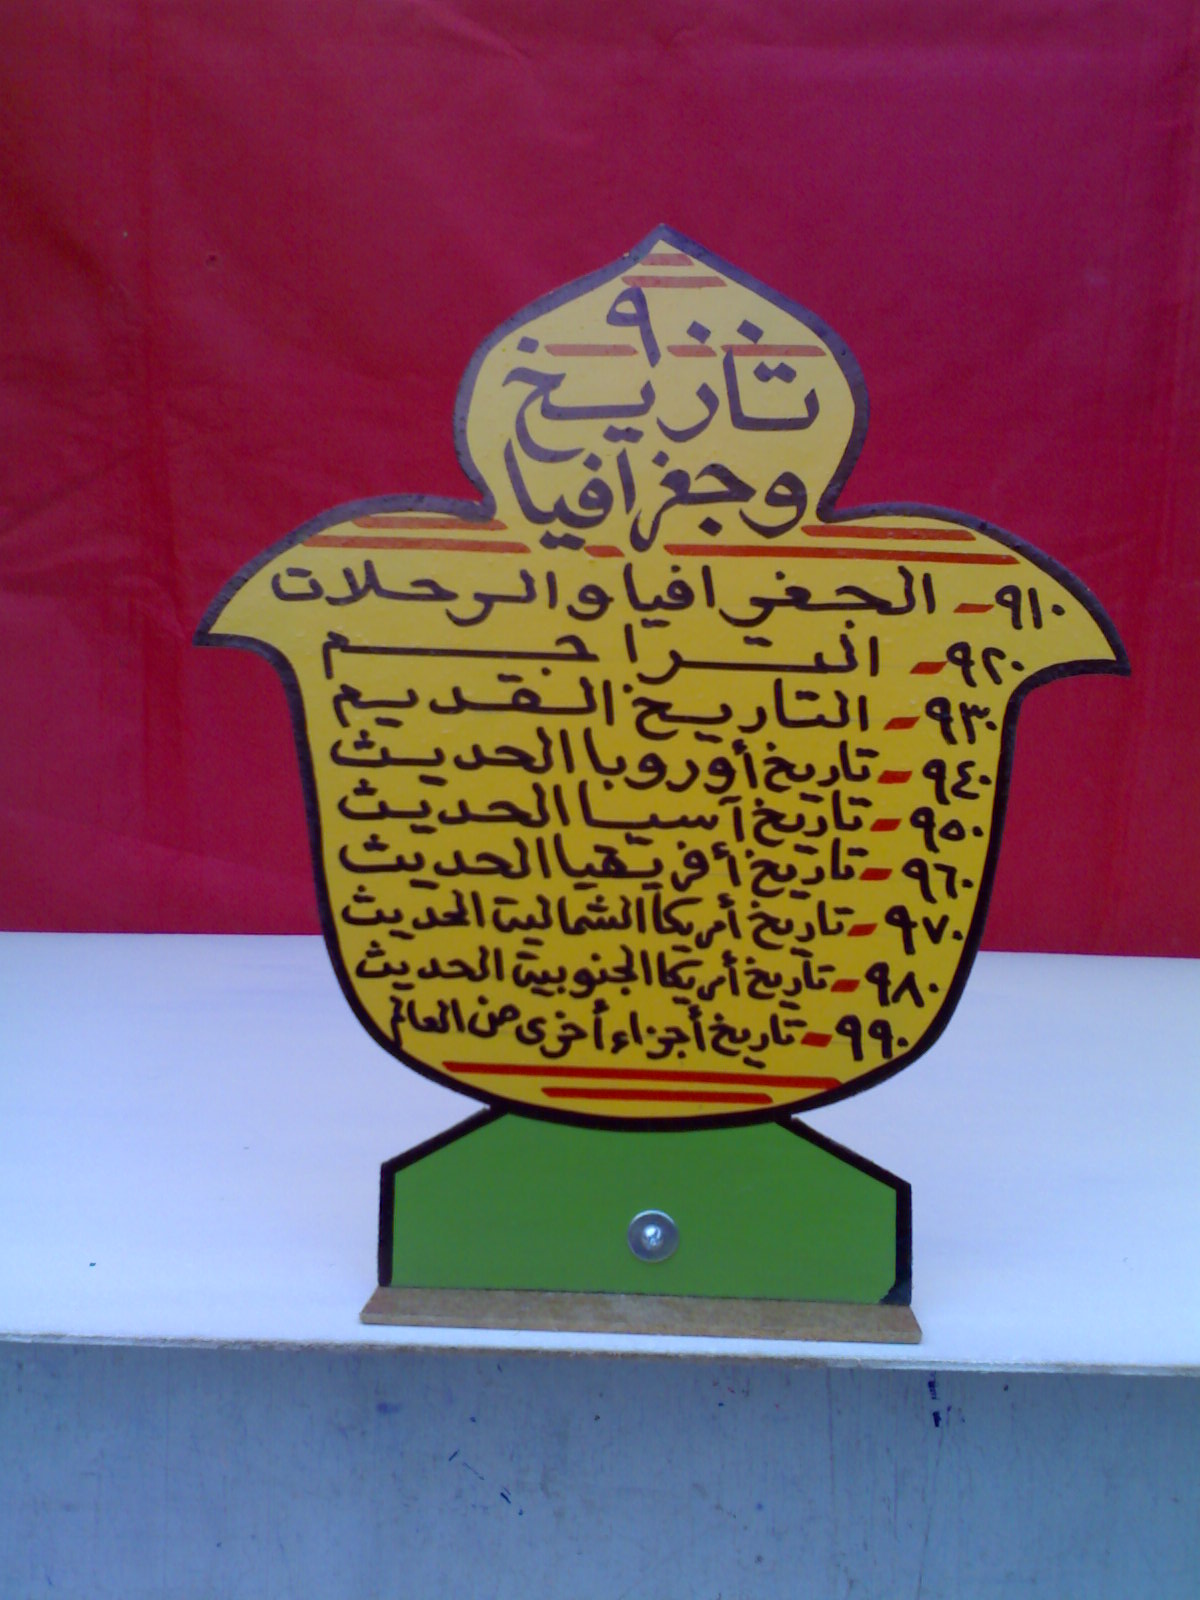 ٩٠٠
تاريخ
وجغرافيا
٩١٠ - الجغرافيا والرحلات
٩٢٠ - التراجم
٩٣٠ - التاريخ القديم
٩٤٠ - تاريخ أوروبا الحديث
٩٥٠ - تاريخ آسيا الحديث
٩٦٠ - تاريخ أفريقيا الحديث
٩٧٠ - تاريخ أمريكا الشمالية الحديث
٩٨٠ - تاريخ أمريكا الجنوبية الحديث
٩٩٠ - تاريخ أجزاء أخرى من العالم